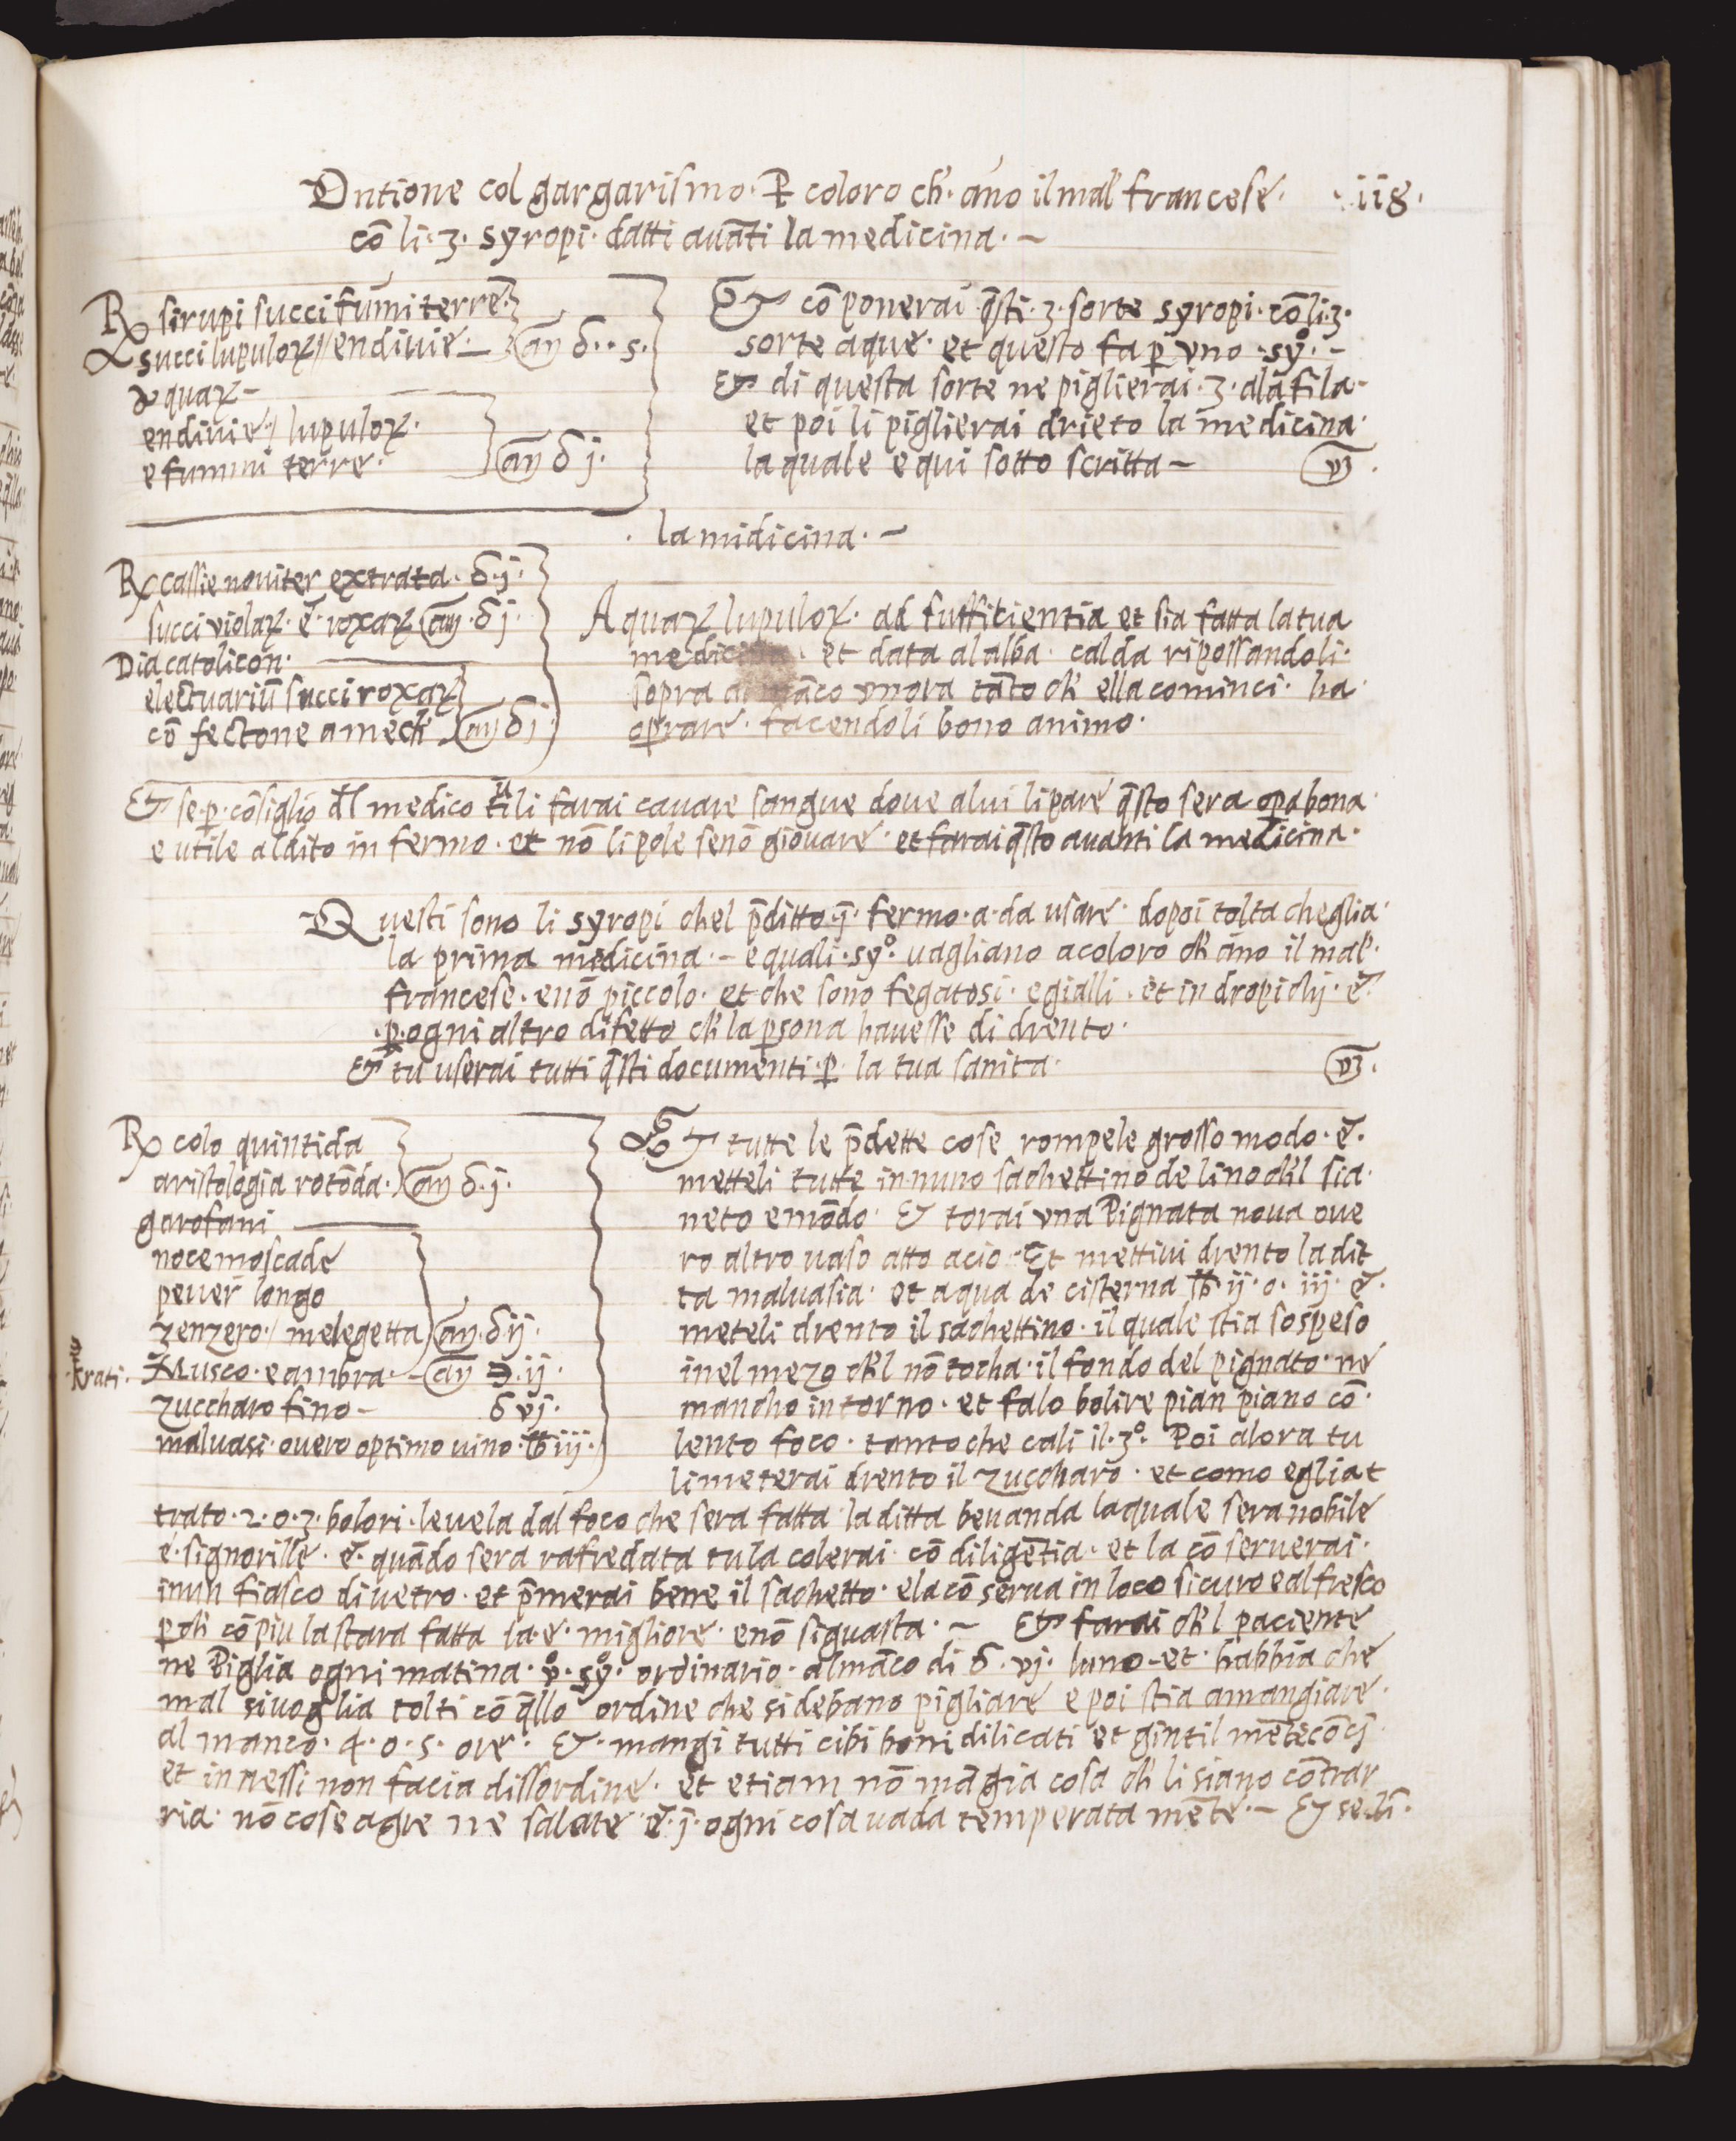 Ontione col gargarismo. P̄ coloro ch'. an̄o il mal francese. .118.
cō li .3. syropi. datti auāti la medicina. ~
℞ sirupi succi fumi terrē.
succi lupuloꝝ // endiuie. — an̄ δ.. s.
aquaꝝ –
endiuie / lupuloꝝ.
e fummi terre. an̄ δ j.
Et cōponerai q̄sti .3. sorte syropi. cō li .3.
sorte aque. et questo fa ꝑ vno .syº. –
Et di questa sorte ne piglierai .3. ala fila –
et poi li piglierai drieto la medicina.
la quale e qui sotto scritta –
. la midicina. ~
℞ cassie nouiter extrata. δ. j.
succi violaꝝ. e. roxaꝝ an̄. δ j.
Diacatolicon.
electuariū succi roxaꝝ
cō fectone amech'. an̄ δ j
Aquaꝝ lupuloꝝ. ad sufficientia et sia fatta la tua
medicina. et data al alba. calda ripossandoli.
sopra al māco vnora tāto ch' ella cominci. ha
oprare. facendoli bono animo.
Et se. ꝑ. cōsiglio dl medico tu li farai cauare sangue doue a lui li pare q̄sto sera oꝑa bona.
e utile al dito in fermo. et nō li pole senō giouare. et farai q̄sto auanti la medicina.
Questi sono li syropi chel p̄ditto. ī. fermo. a. da usare. dopoi tolta che glia.
la prima medicina. – e quali. syº. uagliano a coloro ch' āno il mal.
francese. e nō piccolo. et che sono fegatosi. e gialli. et in dropichj. e.
.ꝑ. ogni altro difetto ch' la ꝑsona hauesse di drento.
Et tu userai tutti q̄sti documenti. ꝑ. la tua sanita.
℞ colo quintida
aristologia rotōda. an̄ δ. j.
garofani
noce moscade
peuer longo
zenzero. / melegetta an̄. δ ij.
trati. Musco. e ambra. – an̄ ℈. ij.
zuccharo fino – δ vj.
maluasi. ouero optimo uino. ℔ iij.
Et tutte le p̄dette cose rompele grosso modo. e.
metteli tutte in nuno sachettino de lino ch'l sia.
neto e mōdo. Et torai vna Pignata noua oue
ro altro uaso atto acio. Et mettiui drento la dit
ta maluasia. et aqua de cisterna ℔ ij. o. iij. e.
meteli drento il sachettino. il quale stia sospeso
inel mezo ch'l nō tocha. il fondo del pignato. ne
mancho intorno. et falo bolire pian piano cō.
lento foco. tanto che cali il. 3º. Poi alora tu
li meterai drento il zuccharo. et como eglia t
trato. 2. o. 3. bolori. leuela dal foco che sera fatta la ditta beuanda la quale sera nobile
e. signorille. e. quādo sera rafredata tu la colerai cō diligētia. et la cō seruerai.
inun fiasco di uetro. et p̄merai bene il sachetto. e la cō serua in loco sicuro e al fresco
ꝑch' cō piu la stara fatta sa. e. migliore. e nō si guasta. ~ Et farai ch'l paciente
ne Piglia ogni matina. vº. syº. ordinario. al māco di δ. vj. luno. et. habbia che
mal si uoglia tolti cō q̄llo ordine che si debano pigliare e poi stia a mangiare.
al manco. 4. o. 5. ore. Et. mangi tutti cibi boni dilicati et gintil mēte cōcj
et in nessi non facia dissordine. et etiam nō māgia cosa ch' li siano cōtrar
ria. nō cose agre ne salate e. j. ogni cosa uada temperata mēte. – Et se.